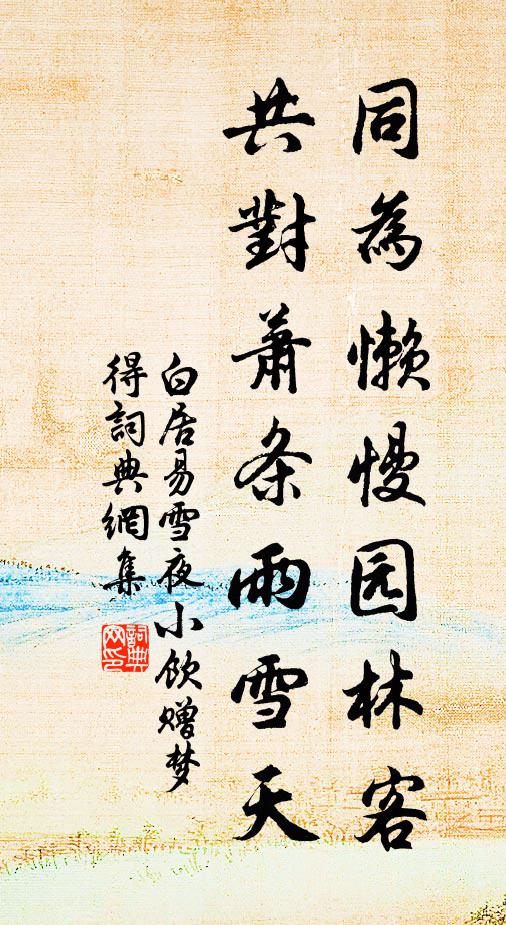 同為懒慢园林客
共對萧条雨雪天
白居易雪夜小饮赠梦
得詞典網集
詞典
网印